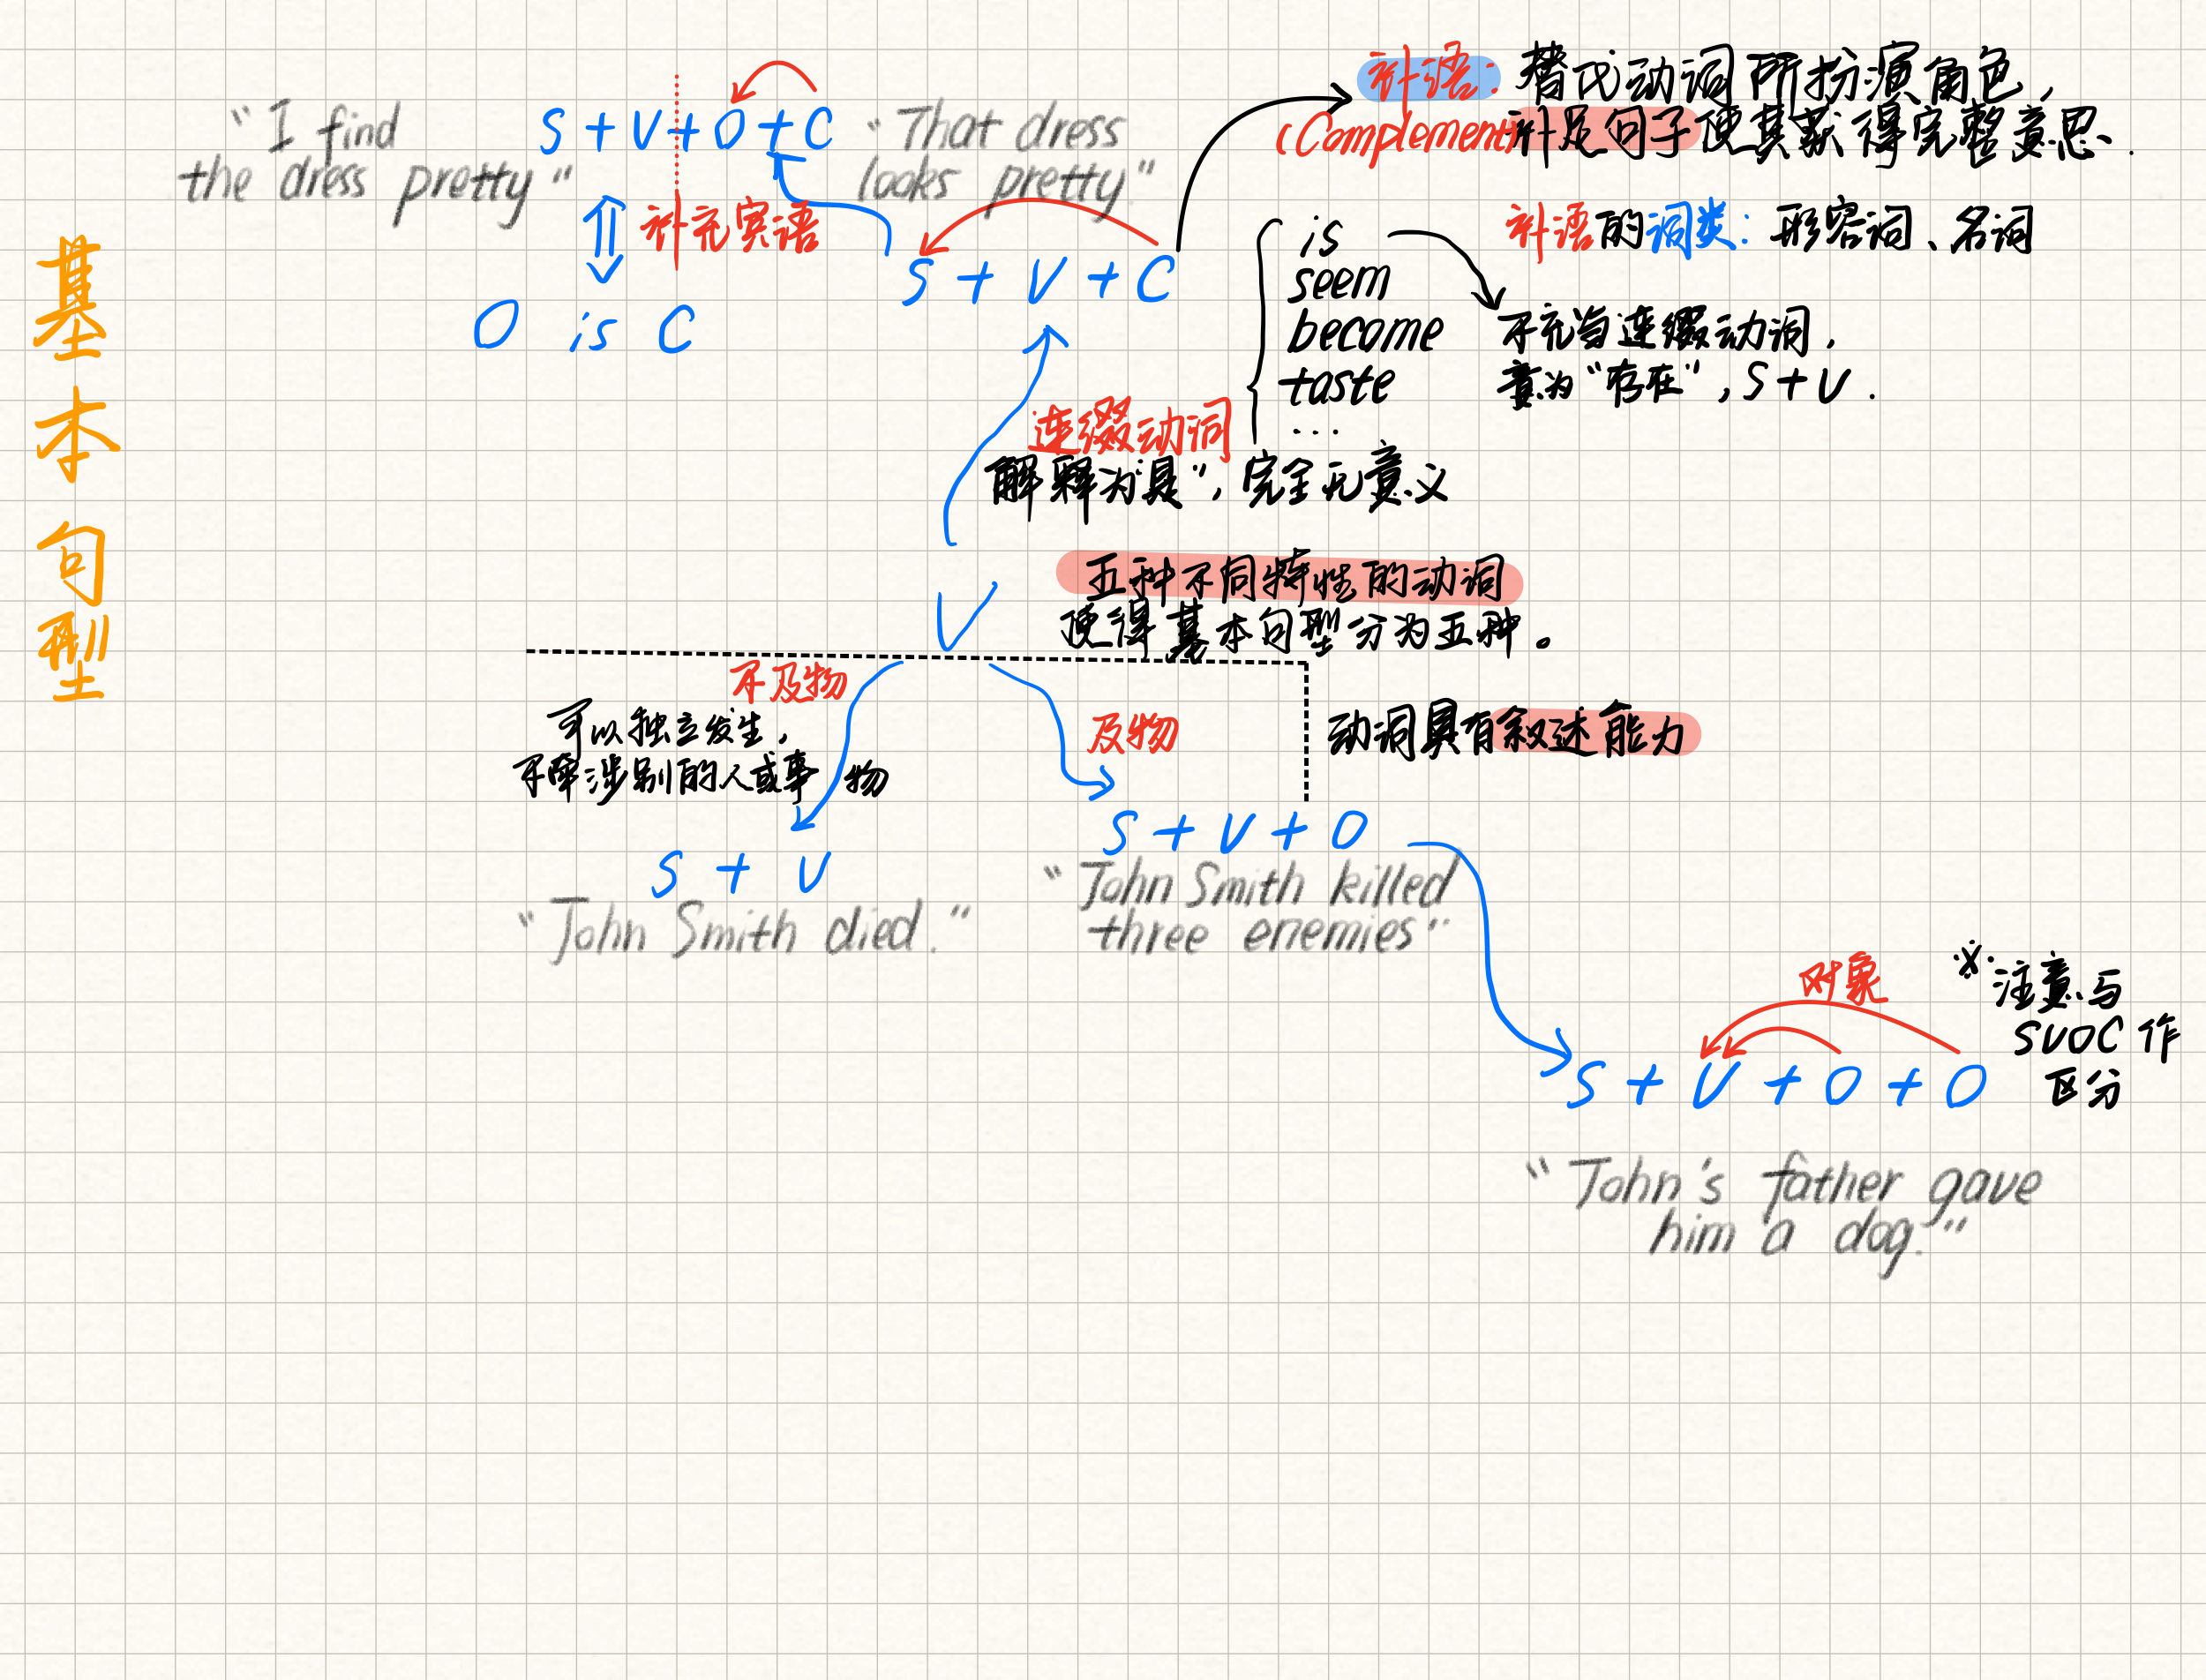 基本句型
"I find
the dress pretty"
S + V + O + C
补充宾语
O is C
"That dress
looks pretty"
S + V + C
补语: 替代动词所扮演角色,
(Complement) 补足句子使其获得完整意思.
补语的词类: 形容词、名词
is
seem
become
taste
...
不充当连缀动词,
意为"存在", S + V.
连缀动词
解释为"是", 完全无意义
V
五种不同特性的动词
使得基本句型分为五种。
不及物
可以独立发生,
不牵涉别的人或事物
S + V
"John Smith died."
及物
动词具有叙述能力
S + V + O
"John Smith killed
three enemies"
对象
S + V + O + O
※注意与
SVOC作
区分
"John's father gave
him a dog."